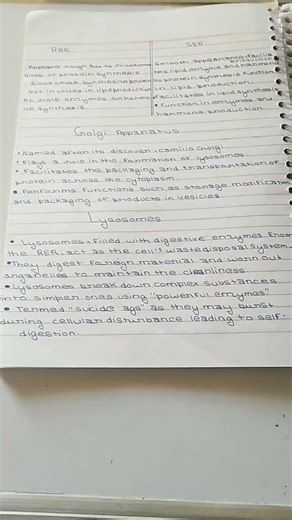 RER
SER
Appears rough due to ribosomes
Smooth appearance facilita
production
Sites of protein synthesis
tes lipid enzyme and hormone
Ribosomes synthesize protein
No protein synthesis function
Not involved in lipid production
in lipid production.
No role enzymes, or hormo
Facilitates in lipid synthesis
ne synthesis.
• Function in enzymes and
hormone production
Golgi Apparatus
• Named after its discover, camilio Golgi.
• Plays a role in the formation of lysosomes.
• Facilitates the packaging and transportation of
protein across the cytoplasm.
• Performs functions such as storage modification
and packaging of products in vesicles.
Lysosomes
• Lysosomes • Filled with digestive enzymes from
the RER, act as the cell's waste disposal system.
• They digest foreign material and worn out
organelles to maintain the cleanliness.
• Lysosomes break down complex substances
into simpler ones using "powerful enzymes"
• Termed "sucide ags" as they may burst
during cellular disturbance leading to self-
digestion.